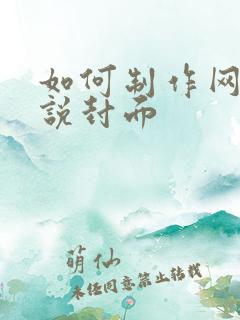 如何制作网
说封面
萌仙
未经同意禁止转载